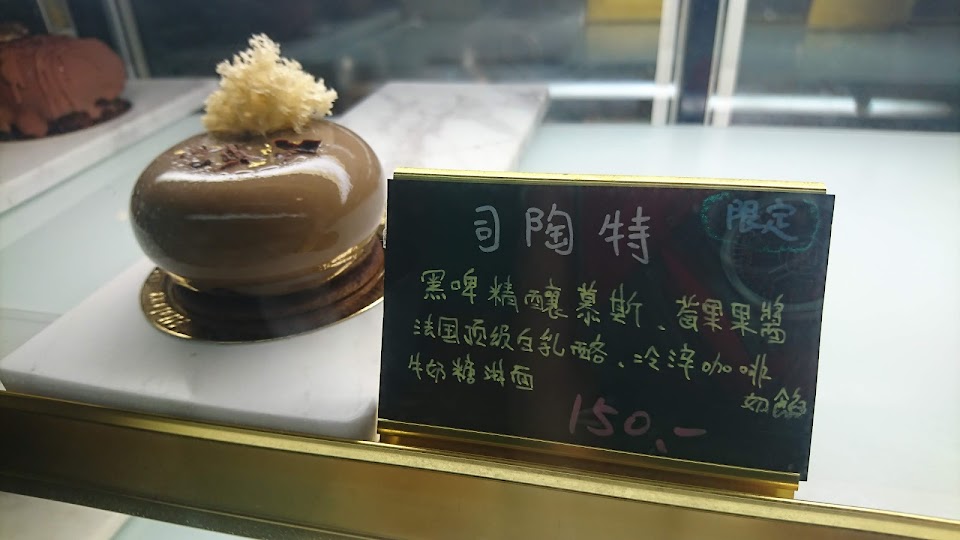 司陶特
限定
黑啤精釀慕斯、莓果果醬
法国顶级白乳酪、冷淬咖啡
奶餡
牛奶糖淋面
150.-